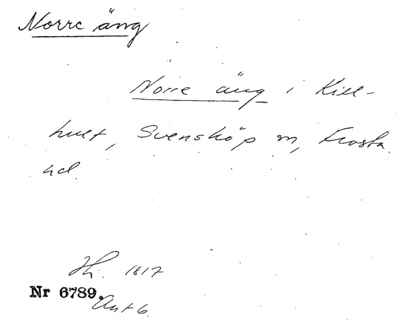 Norre äng
Norre äng i Kill-
hult, Svensköp sn, Frosta
hd.
1817
Nr 6789.